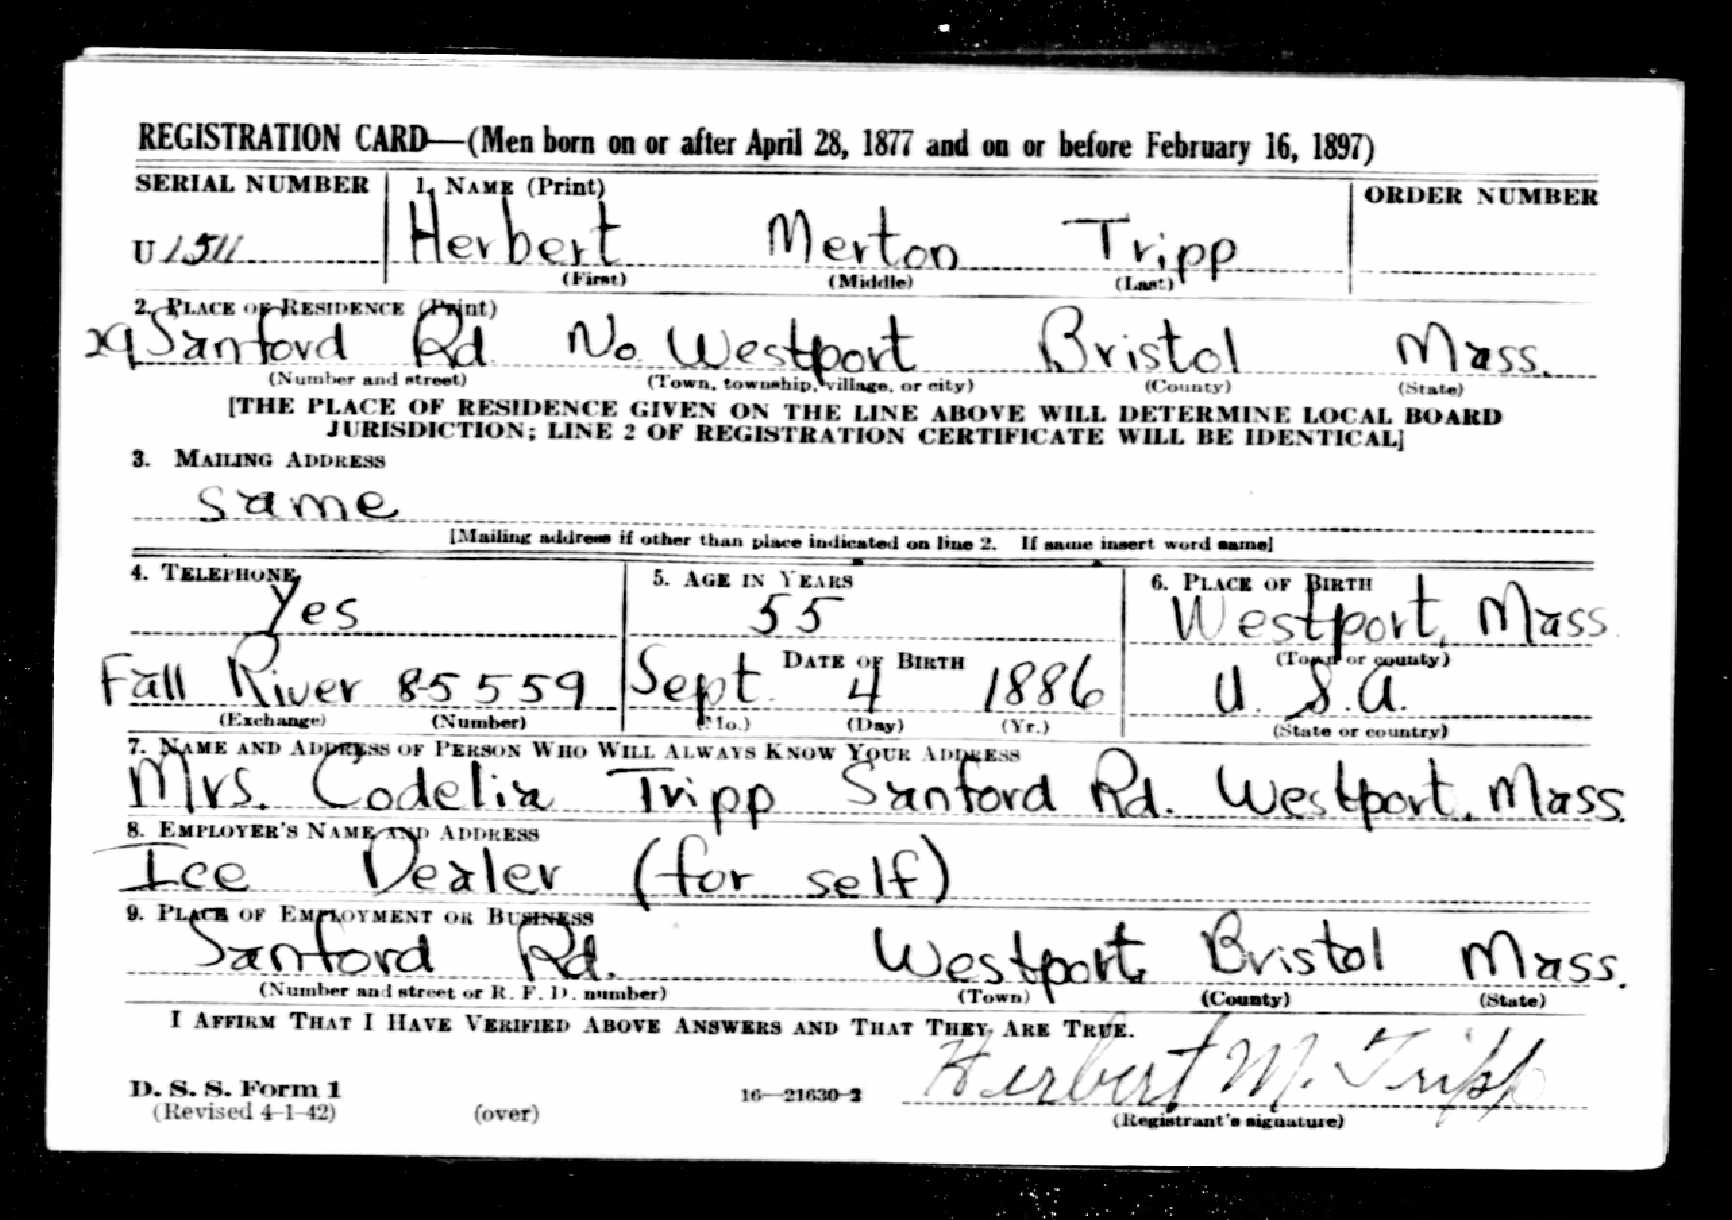 REGISTRATION CARD—(Men born on or after April 28, 1877 and on or before February 16, 1897)
SERIAL NUMBER 1. NAME (Print) ORDER NUMBER
U 1511 Herbert Merton Tripp
(First) (Middle) (Last)
2. PLACE OF RESIDENCE (Print)
Sanford Rd. No. Westport Bristol Mass.
(Number and street) (Town, township, village, or city) (County) (State)
[THE PLACE OF RESIDENCE GIVEN ON THE LINE ABOVE WILL DETERMINE LOCAL BOARD
JURISDICTION; LINE 2 OF REGISTRATION CERTIFICATE WILL BE IDENTICAL]
3. MAILING ADDRESS
same
[Mailing address if other than place indicated on line 2. If same insert word same]
4. TELEPHONE 5. AGE IN YEARS 6. PLACE OF BIRTH
Yes 55 Westport, Mass.
DATE OF BIRTH (Town or county)
Fall River 8-5559 Sept. 4 1886 U. S. A.
(Exchange) (Number) (Mo.) (Day) (Yr.) (State or country)
7. NAME AND ADDRESS OF PERSON WHO WILL ALWAYS KNOW YOUR ADDRESS
Mrs. Codelia Tripp Sanford Rd. Westport, Mass.
8. EMPLOYER'S NAME AND ADDRESS
Ice Dealer (for self)
9. PLACE OF EMPLOYMENT OR BUSINESS
Sanford Rd. Westport, Bristol Mass.
(Number and street or R. F. D. number) (Town) (County) (State)
I AFFIRM THAT I HAVE VERIFIED ABOVE ANSWERS AND THAT THEY ARE TRUE.
Herbert M. Tripp
D. S. S. Form 1 16—21630-2
(Revised 4-1-42) (over) (Registrant's signature)